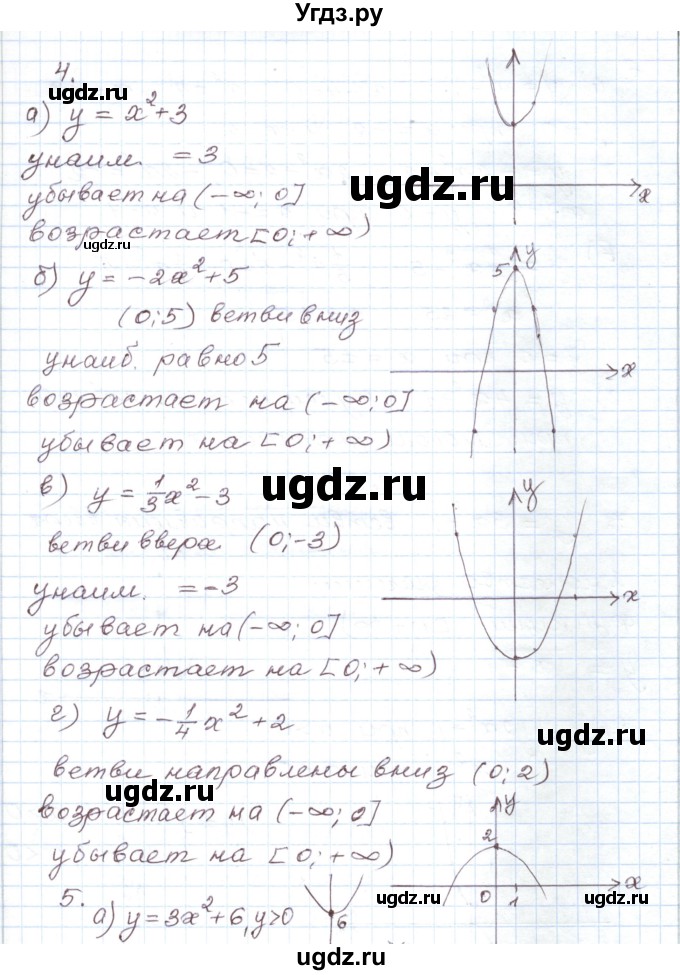 Угдз.ру
4.
ugdz.ru
а) y = x²+3
yнаим. = 3
ugdz.ru
убывает на (-∞; 0]
x
возрастает [0; +∞)
ugdz.ru
б) y = -2x²+5
5
y
(0;5) ветви вниз
yнаиб. равно 5
x
возрастает на (-∞;0]
убывает на [0; +∞)
ugdz.ru
в) y = 1/3x²-3
y
ветви вверх (0;-3)
yнаим. = -3
x
убывает на (-∞; 0]
возрастает на [0; +∞)
г) y = -1/4x²+2
ugdz.ru
ветви направлены вниз (0; 2)
ugdz.ru
возрастает на (-∞; 0]
y
2
убывает на [0; +∞)
x
0 1
5.
а) y = 3x²+6, y>0
6
ugdz.ru
ugdz.ru